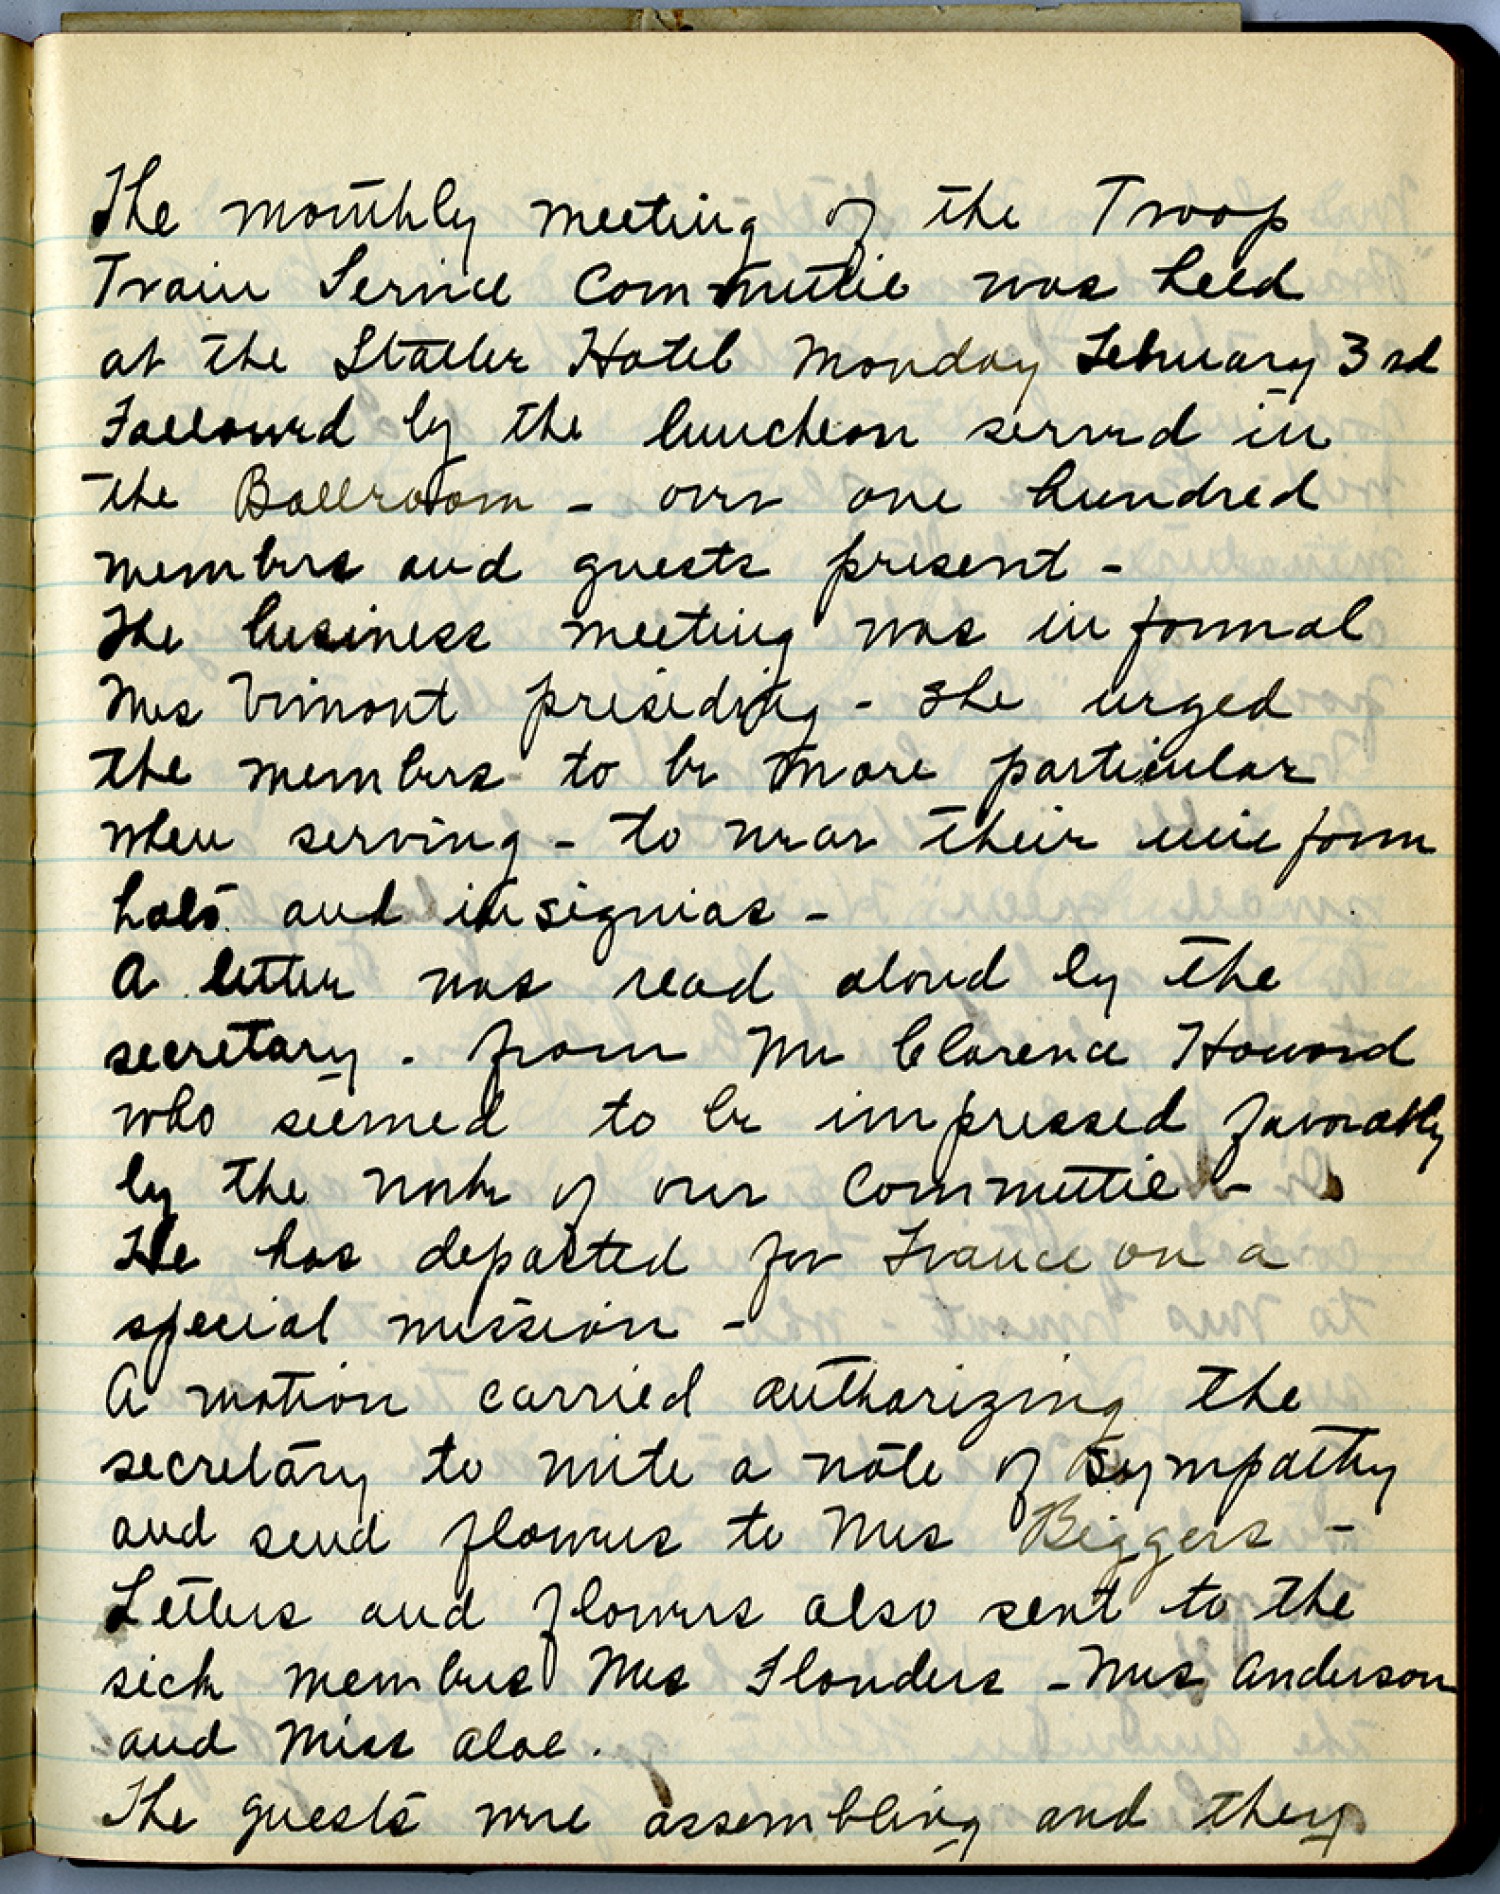 The monthly meeting of the Troop
Train Service Committee was held
at the Statler Hotel Monday February 3rd
Followed by the luncheon served in
the Ballroom - over one hundred
members and guests present -
The business meeting was informal
Mrs Vimont presiding - She urged
the members to be more particular
when serving - to wear their uniform
hats and insignias -
A letter was read aloud by the
secretary - from Mr Clarence Howard
who seemed to be impressed favorably
by the work of our Committee -
He has departed for France on a
special mission -
A motion carried authorizing the
secretary to write a note of sympathy
and send flowers to Mrs Biggers -
Letters and flowers also sent to the
sick members Mrs Flanders - Mrs Anderson
and Miss Aloe.
The guests were assembling and they